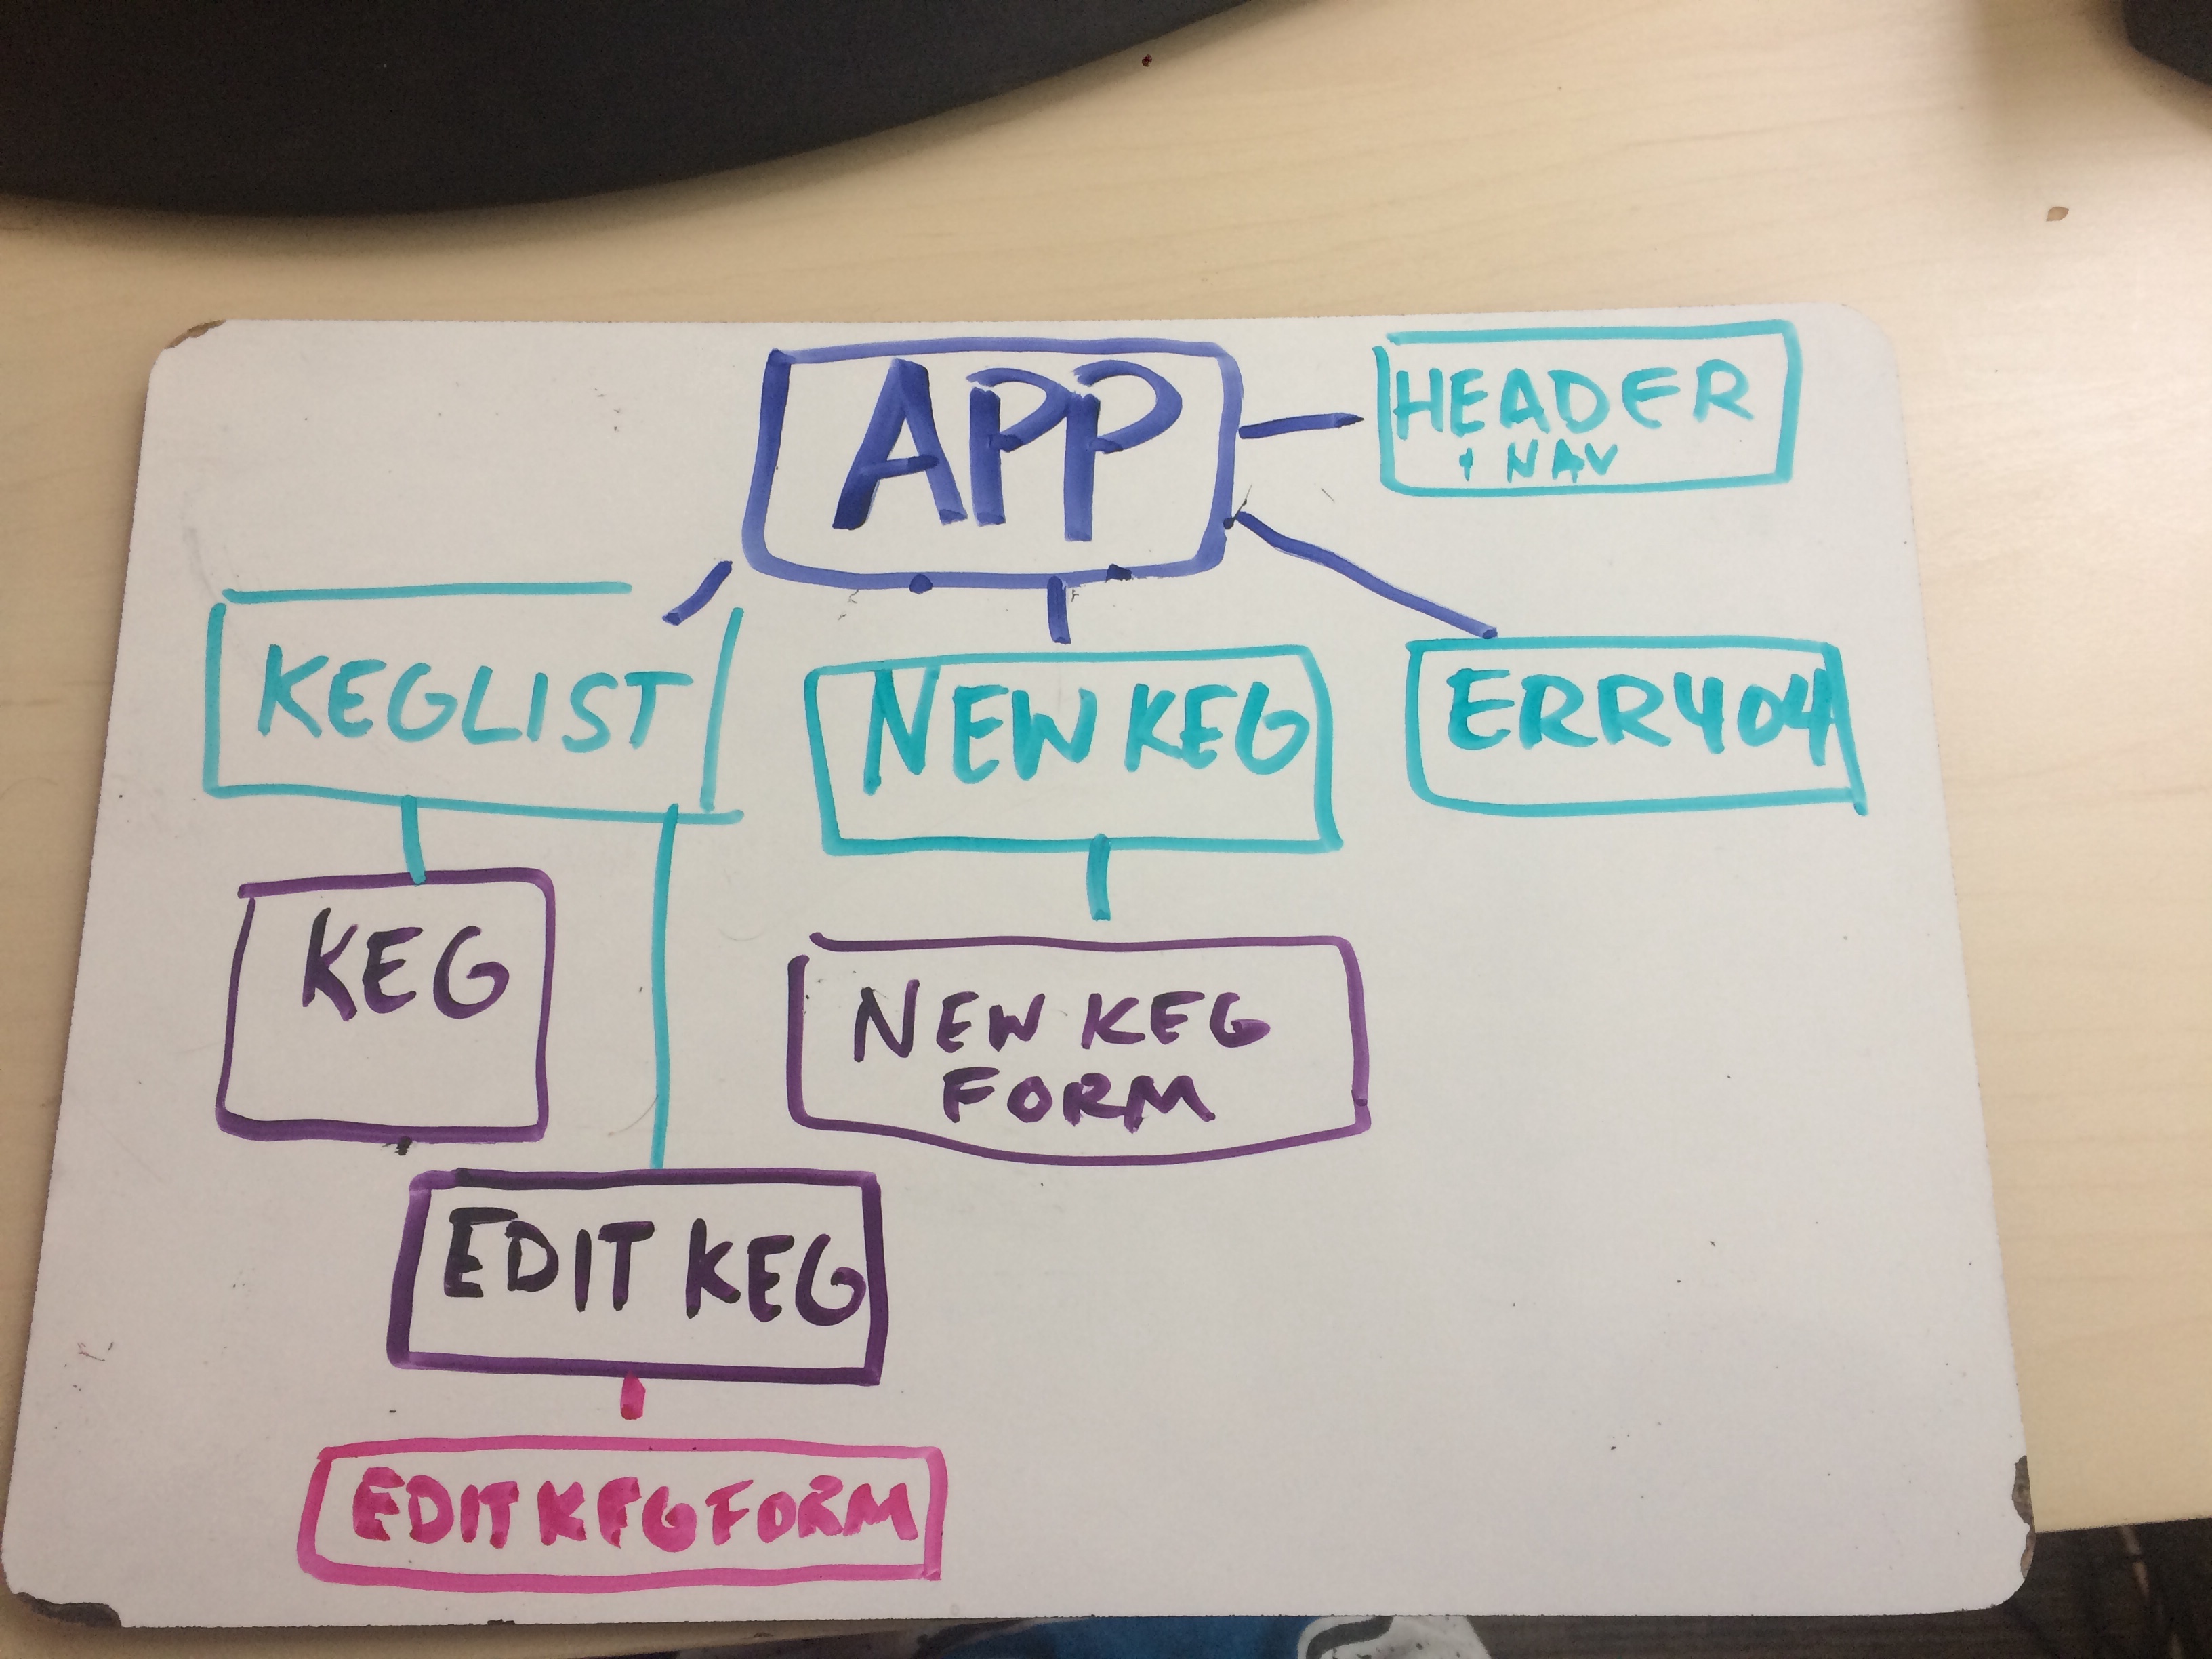 APP
HEADER
+ NAV
KEGLIST
NEW KEG
ERR404
KEG
NEW KEG
FORM
EDIT KEG
EDIT KEG FORM